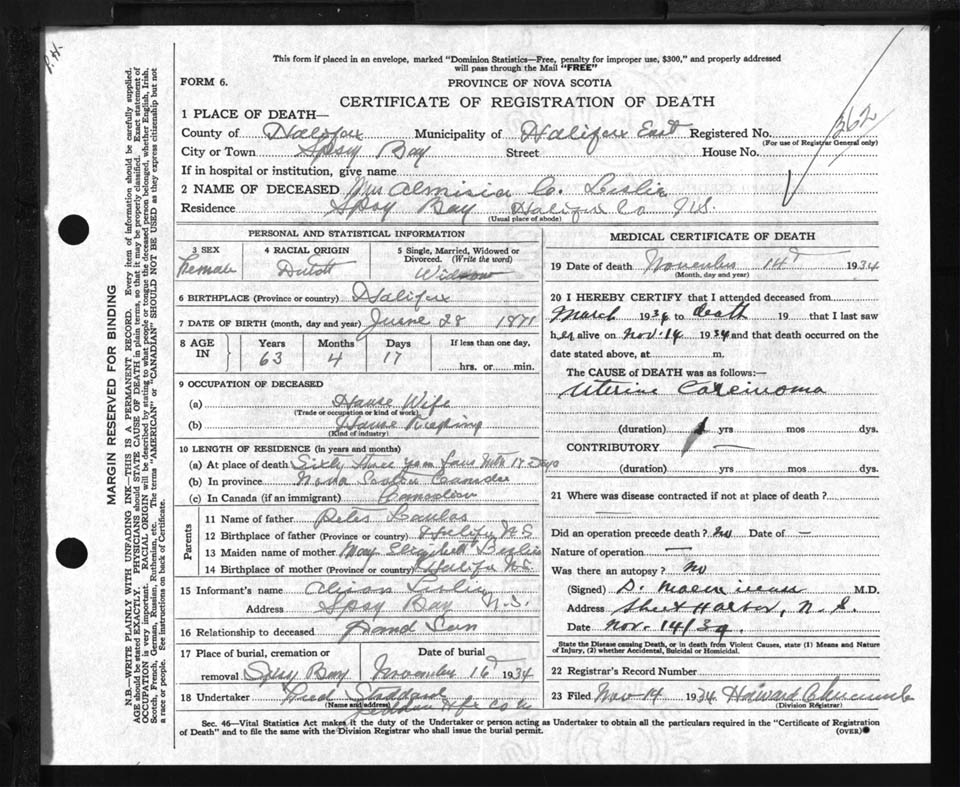 This form if placed in an envelope, marked "Dominion Statistics—Free, penalty for improper use, $300," and properly addressed
will pass through the Mail "FREE"
FORM 6.
PROVINCE OF NOVA SCOTIA
CERTIFICATE OF REGISTRATION OF DEATH
1 PLACE OF DEATH—
County of Halifax Municipality of Halifax East Registered No. 362
(For use of Registrar General only)
City or Town Spsy Bay Street House No.
If in hospital or institution, give name
2 NAME OF DECEASED Mrs Almisia C. Leslie
Residence Spsy Bay Halifax Co N.S.
(Usual place of abode)
PERSONAL AND STATISTICAL INFORMATION
3 SEX 4 RACIAL ORIGIN 5 Single, Married, Widowed or
Divorced. (Write the word)
Female Dutch Widow
6 BIRTHPLACE (Province or country) Halifax
7 DATE OF BIRTH (month, day and year) June 28 1871
8 AGE IN Years Months Days If less than one day,
63 4 17 hrs. or min.
9 OCCUPATION OF DECEASED
(a) House Wife
(Trade or occupation or kind of work)
(b) House Keeping
(Kind of industry)
10 LENGTH OF RESIDENCE (in years and months)
(a) At place of death Sixty three years four Mth 17 Days
(b) In province Nova Scotia Canada
(c) In Canada (if an immigrant) Canadian
Parents
11 Name of father Peter
12 Birthplace of father (Province or country) Halifax N S
13 Maiden name of mother Mary Elizabeth Leslie
14 Birthplace of mother (Province or country) Halifax N.S.
15 Informant's name Leslie
Address Spsy Bay N.S.
16 Relationship to deceased Grand Son
17 Place of burial, cremation or Date of burial
removal Spsy Bay November 16 1934
18 Undertaker Fred Stoddard
(Name and address) Hfx Co N
MEDICAL CERTIFICATE OF DEATH
19 Date of death November 14 1934
(Month, day and year)
20 I HEREBY CERTIFY that I attended deceased from
March 1934 to death 19 that I last saw
her alive on Nov. 14 1934 and that death occurred on the
date stated above, at m.
The CAUSE of DEATH was as follows:—
Uterine Carcinoma
(duration) 1 yrs mos dys.
CONTRIBUTORY
(duration) yrs mos dys.
21 Where was disease contracted if not at place of death?
Did an operation precede death? No Date of —
Nature of operation —
Was there an autopsy? No
(Signed) D. M.D.
Address Sheet Harbor, N. S.
Date Nov. 14/34.
State the Disease causing Death, or in death from Violent Causes, state (1) Means and Nature
of Injury, (2) whether Accidental, Suicidal or Homicidal.
22 Registrar's Record Number
23 Filed Nov 14 1934 Howard
(Division Registrar)
Sec. 46—Vital Statistics Act makes it the duty of the Undertaker or person acting as Undertaker to obtain all the particulars required in the "Certificate of Registration
of Death" and to file the same with the Division Registrar who shall issue the burial permit. (OVER)
MARGIN RESERVED FOR BINDING
N.B.—WRITE PLAINLY WITH UNFADING INK—THIS IS A PERMANENT RECORD. Every item of information should be carefully supplied.
AGE should be stated EXACTLY. PHYSICIANS should STATE CAUSE OF DEATH in plain terms, so that it may be properly classified. Exact statement of
OCCUPATION is very important. RACIAL ORIGIN will be described by stating to what people or tongue the deceased person belonged, whether English, Irish,
Scotch, French, German, Russian, Ruthenian, etc. The terms "AMERICAN" or "CANADIAN" SHOULD NOT BE USED as they express citizenship but not
a race or people. See instructions on back of Certificate.